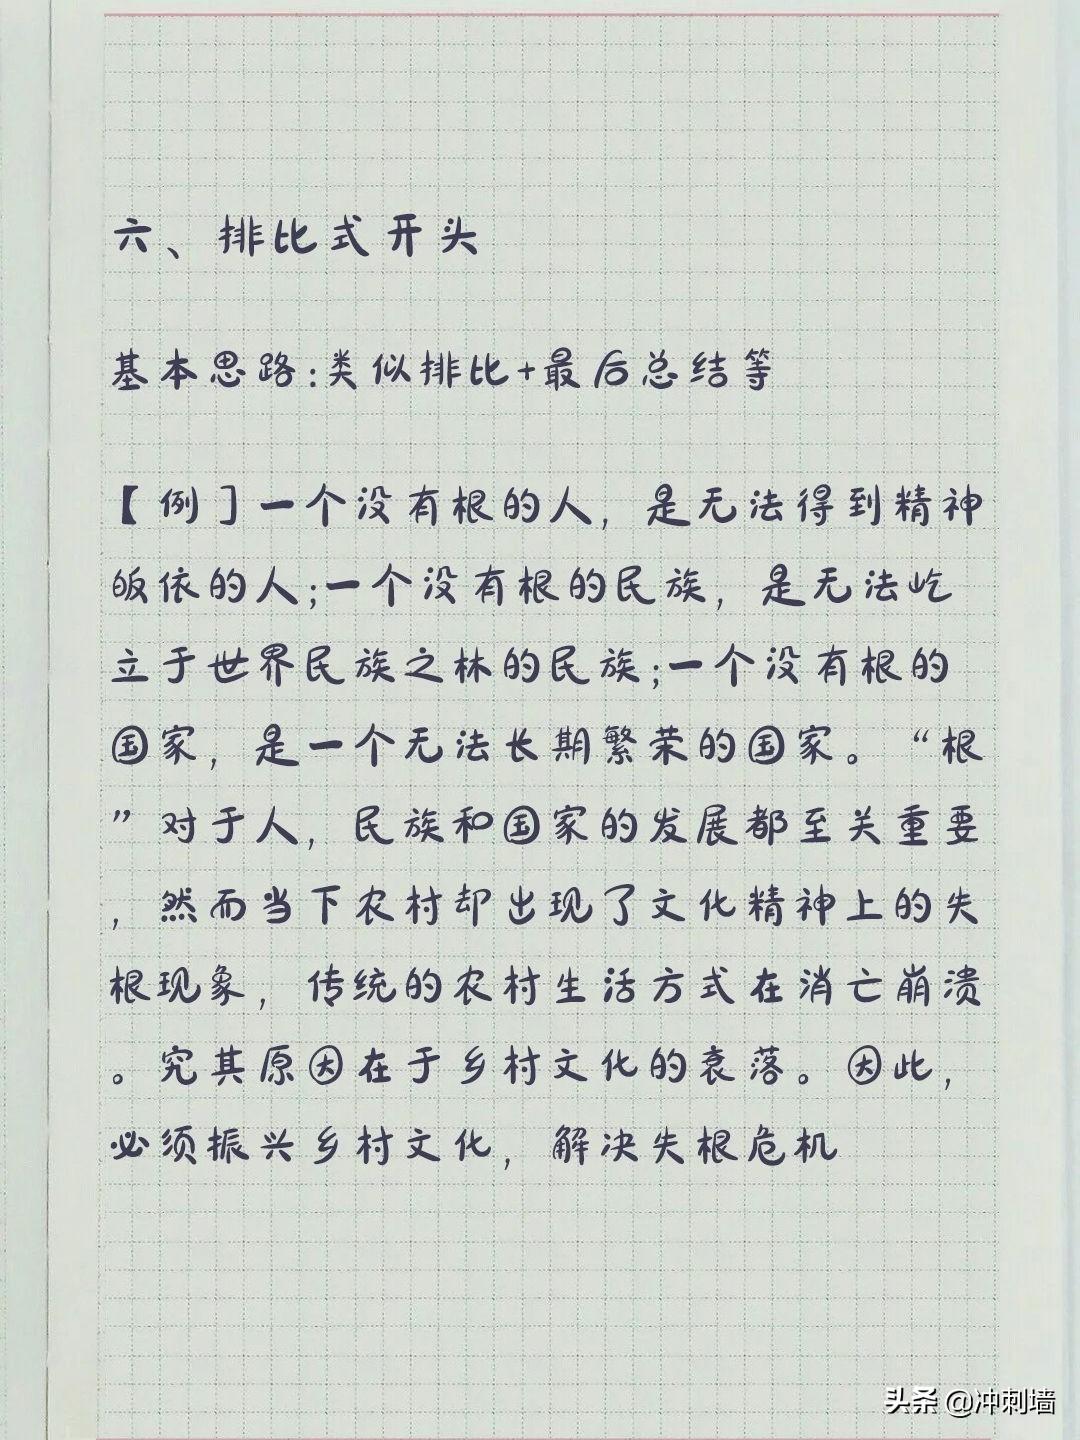 六、排比式开头
基本思路:类似排比+最后总结等
【例】一个没有根的人，是无法得到精神
皈依的人;一个没有根的民族，是无法屹
立于世界民族之林的民族;一个没有根的
国家，是一个无法长期繁荣的国家。“根
”对于人，民族和国家的发展都至关重要
，然而当下农村却出现了文化精神上的失
根现象，传统的农村生活方式在消亡崩溃
。究其原因在于乡村文化的衰落。因此，
必须振兴乡村文化，解决失根危机
头条 @冲刺墙